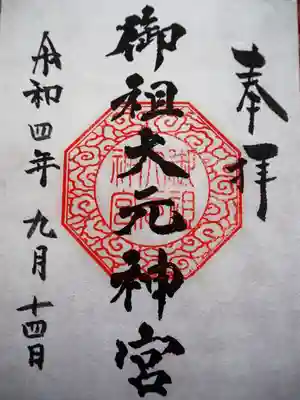 奉拝
御祖大元神宮
令和四年 九月 十四日